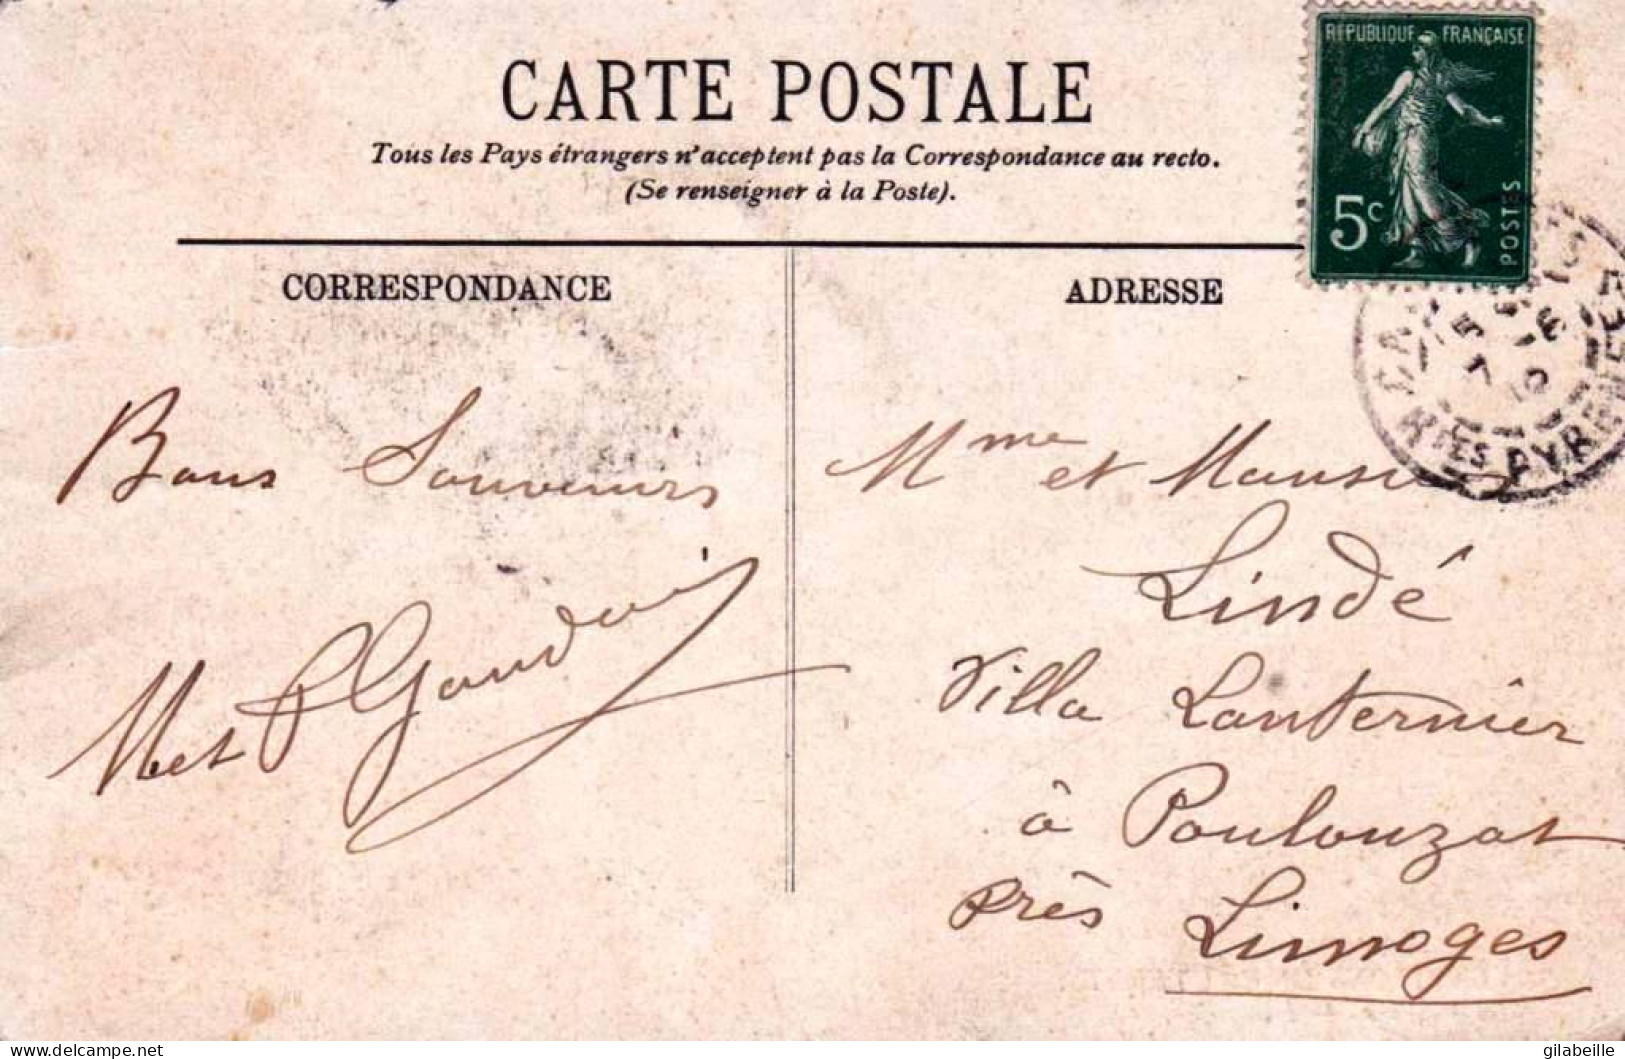 CARTE POSTALE
Tous les Pays étrangers n'acceptent pas la Correspondance au recto.
(Se renseigner à la Poste).
RÉPUBLIQUE FRANÇAISE
5c
POSTES
CORRESPONDANCE
ADRESSE
Htes PYRENEES
Bons Souvenirs
Mme et Monsieur
Lindé
Villa Lanternier
à Poulouzat
près Limoges
gilabeille
delcampe.net